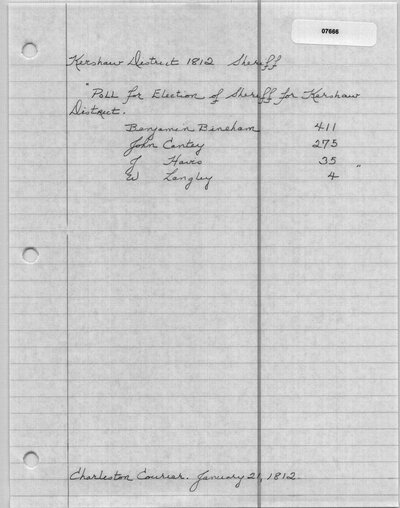 07666
Kershaw District 1812 Sheriff
"Poll for Election of Sheriff for Kershaw
District.
Benjamin Bineham 411
John Cantey 275
J Havis 35 "
W Langley 4
Charleston Courier. January 21, 1812.